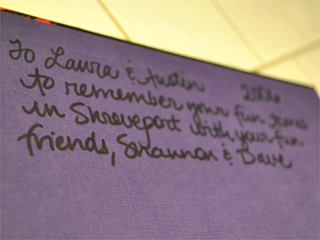 To Laura & Austin 2006
to remember your fun times
in Shreveport with your fun
friends, Shannon & Dave